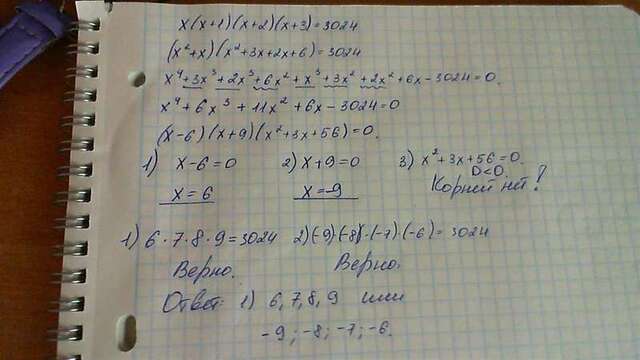 x(x+1)(x+2)(x+3)=3024
(x²+x)(x²+3x+2x+6)=3024
x⁴+3x³+2x³+6x²+x³+3x²+2x²+6x-3024=0.
x⁴+6x³+11x²+6x-3024=0
(x-6)(x+9)(x²+3x+56)=0.
1) x-6=0 2) x+9=0 3) x²+3x+56=0.
D<0.
x=6 x=-9 Корней нет!
1) 6·7·8·9=3024 2)(-9)·(-8)·(-7)·(-6)=3024
Верно. Верно.
Ответ: 1) 6,7,8,9 или
-9; -8; -7; -6.